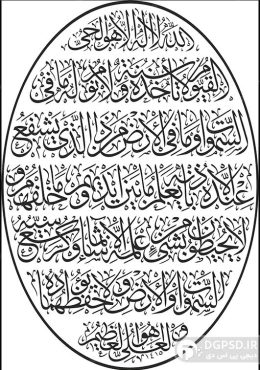 الله لا إله إلا هو الحي
القيوم لا تأخذه سنة ولا نوم له ما في
السموات وما في الأرض من ذا الذي يشفع
عنده إلا بإذنه يعلم ما بين أيديهم وما خلفهم و
لا يحيطون بشيء من علمه إلا بما شاء وسع كرسيه
السموات والأرض ولا يئوده حفظهما
وهو العلي العظيم
DGPSD.IR
دیجی پی اس دی